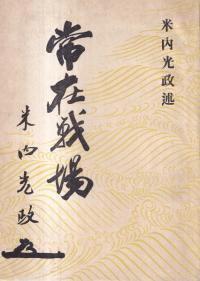 米内光政述
常在戰場
米内光政